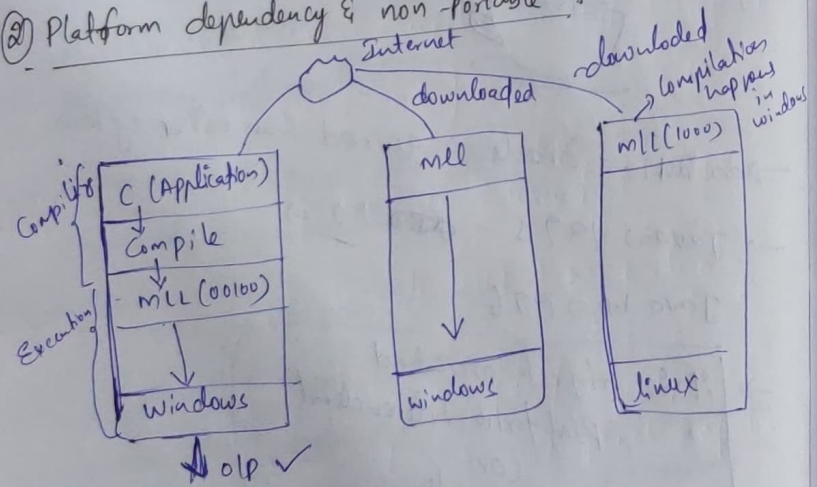 ② Platform dependency & non-Portable
Internet
downloded
downloaded
Compilation
happens
in
windows
C (Application)
Compile
MLL (00100)
windows
Execution
O/P ✓
mll
windows
mll (1000)
linux